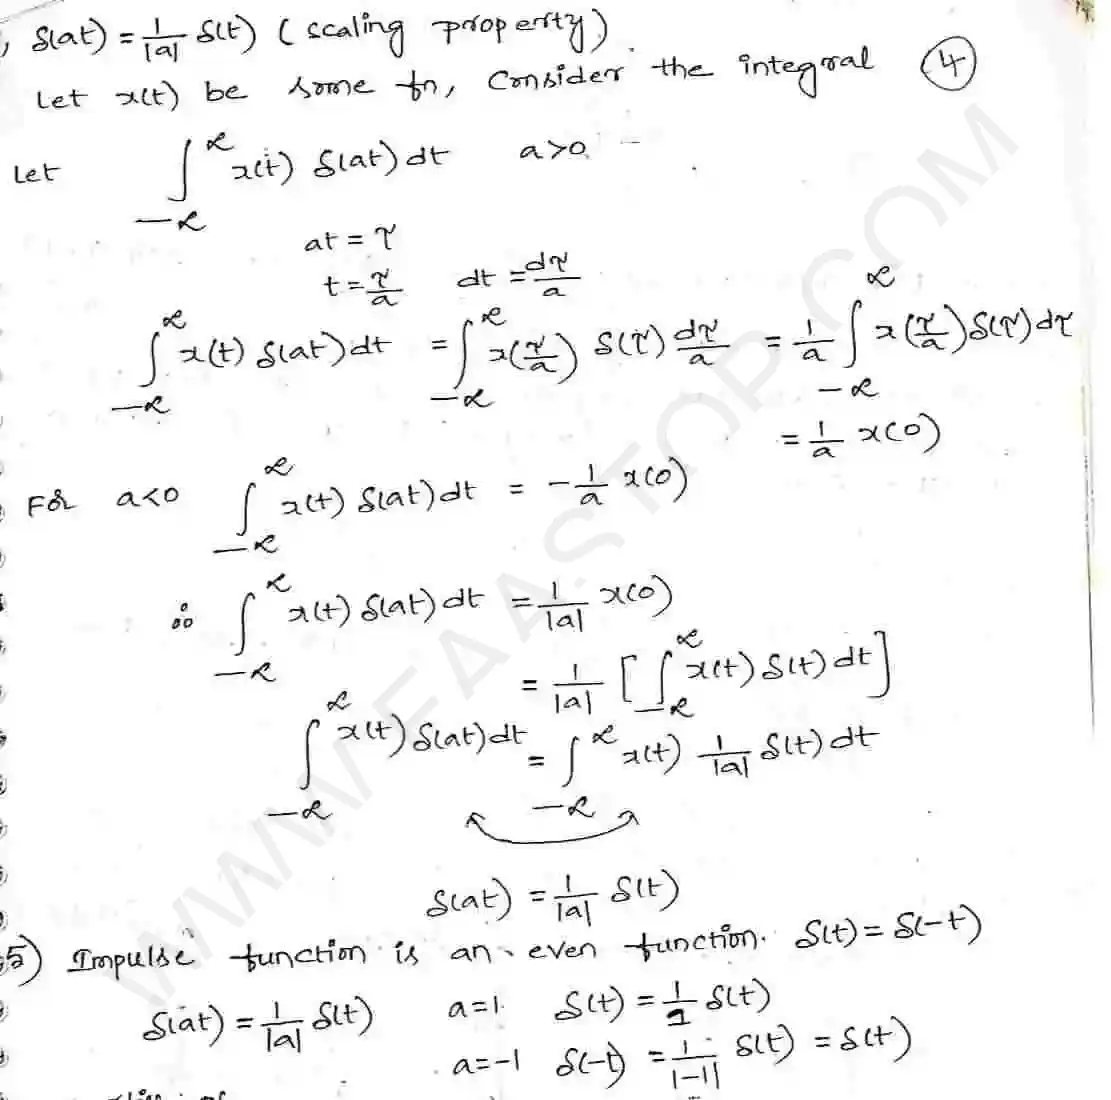 , δ(at) = 1/|a| δ(t) ( scaling property)
Let x(t) be some fn, Consider the integral (4)
Let ∫_{-∞}^{∞} x(t) δ(at) dt a>0
at = τ
t = τ/a dt = dτ/a
∫_{-∞}^{∞} x(t) δ(at) dt = ∫_{-∞}^{∞} x(τ/a) δ(τ) dτ/a = 1/a ∫_{-∞}^{∞} x(τ/a) δ(τ) dτ
= 1/a x(0)
For a<0 ∫_{-∞}^{∞} x(t) δ(at) dt = -1/a x(0)
∴ ∫_{-∞}^{∞} x(t) δ(at) dt = 1/|a| x(0)
= 1/|a| [ ∫_{-∞}^{∞} x(t) δ(t) dt ]
∫_{-∞}^{∞} x(t) δ(at) dt = ∫_{-∞}^{∞} x(t) 1/|a| δ(t) dt
δ(at) = 1/|a| δ(t)
5) Impulse function is an even function. δ(t) = δ(-t)
δ(at) = 1/|a| δ(t) a=1 δ(t) = 1/1 δ(t)
a=-1 δ(-t) = 1/|-1| δ(t) = δ(t)
WWW.FAASTOP.COM